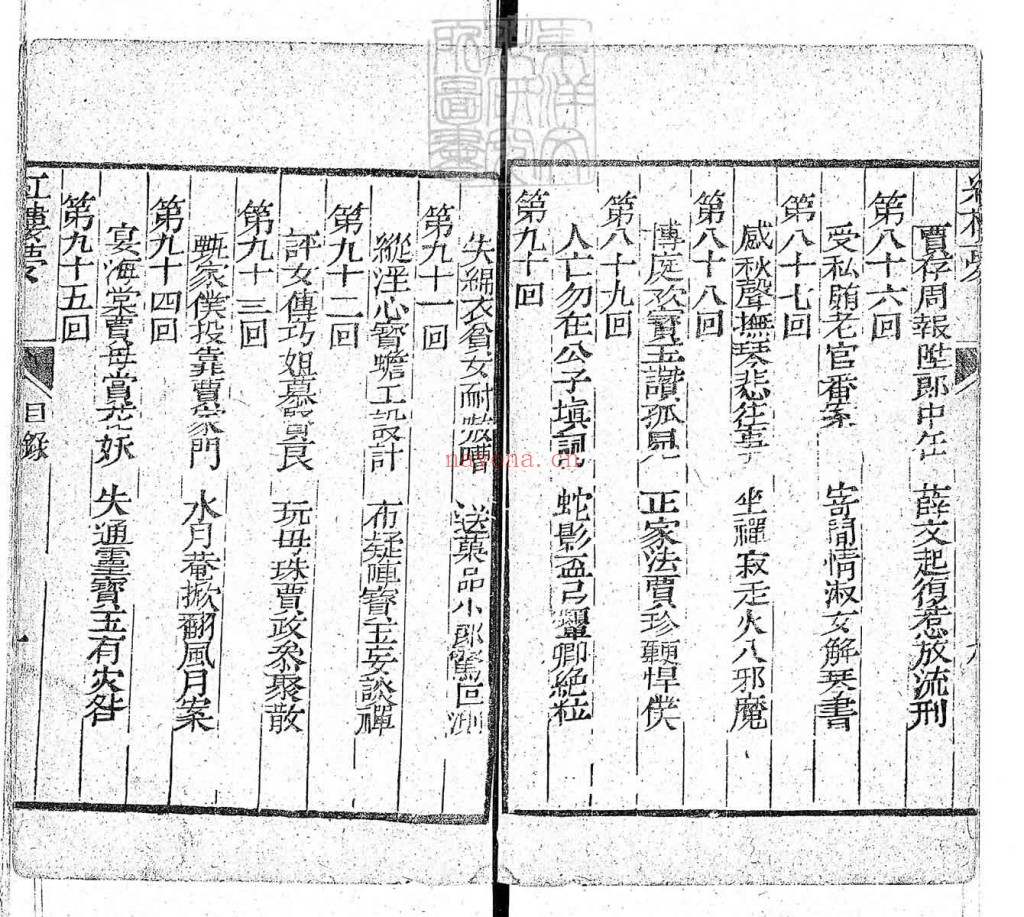 賈存周報陞郎中任 薛文起復惹放流刑
第八十六回
受私賄老官番案 寄閒情淑女解琴書
第八十七回
感秋聲撫琴悲往事 坐禪寂走火入邪魔
第八十八回
博庭歡寶玉讚孤兒 正家法賈珍鞭悍僕
第八十九回
人亡勿在公子塡詞 蛇影盃弓顰卿絶粒
第九十回
失綿衣貧女耐嗷嘈 送菓品小郎驚叵測
第九十一回
縱淫心寶蟾工設計 布疑陣寶玉妄談禪
第九十二回
評女傳巧姐慕賢良 玩母珠賈政叅聚散
第九十三回
甄家僕投靠賈家門 水月菴掀翻風月案
第九十四回
宴海棠賈母賞花妖 失通靈寶玉有灾咎
第九十五回
紅樓夢 目錄
東洋文化研究所圖書
nayona.cn